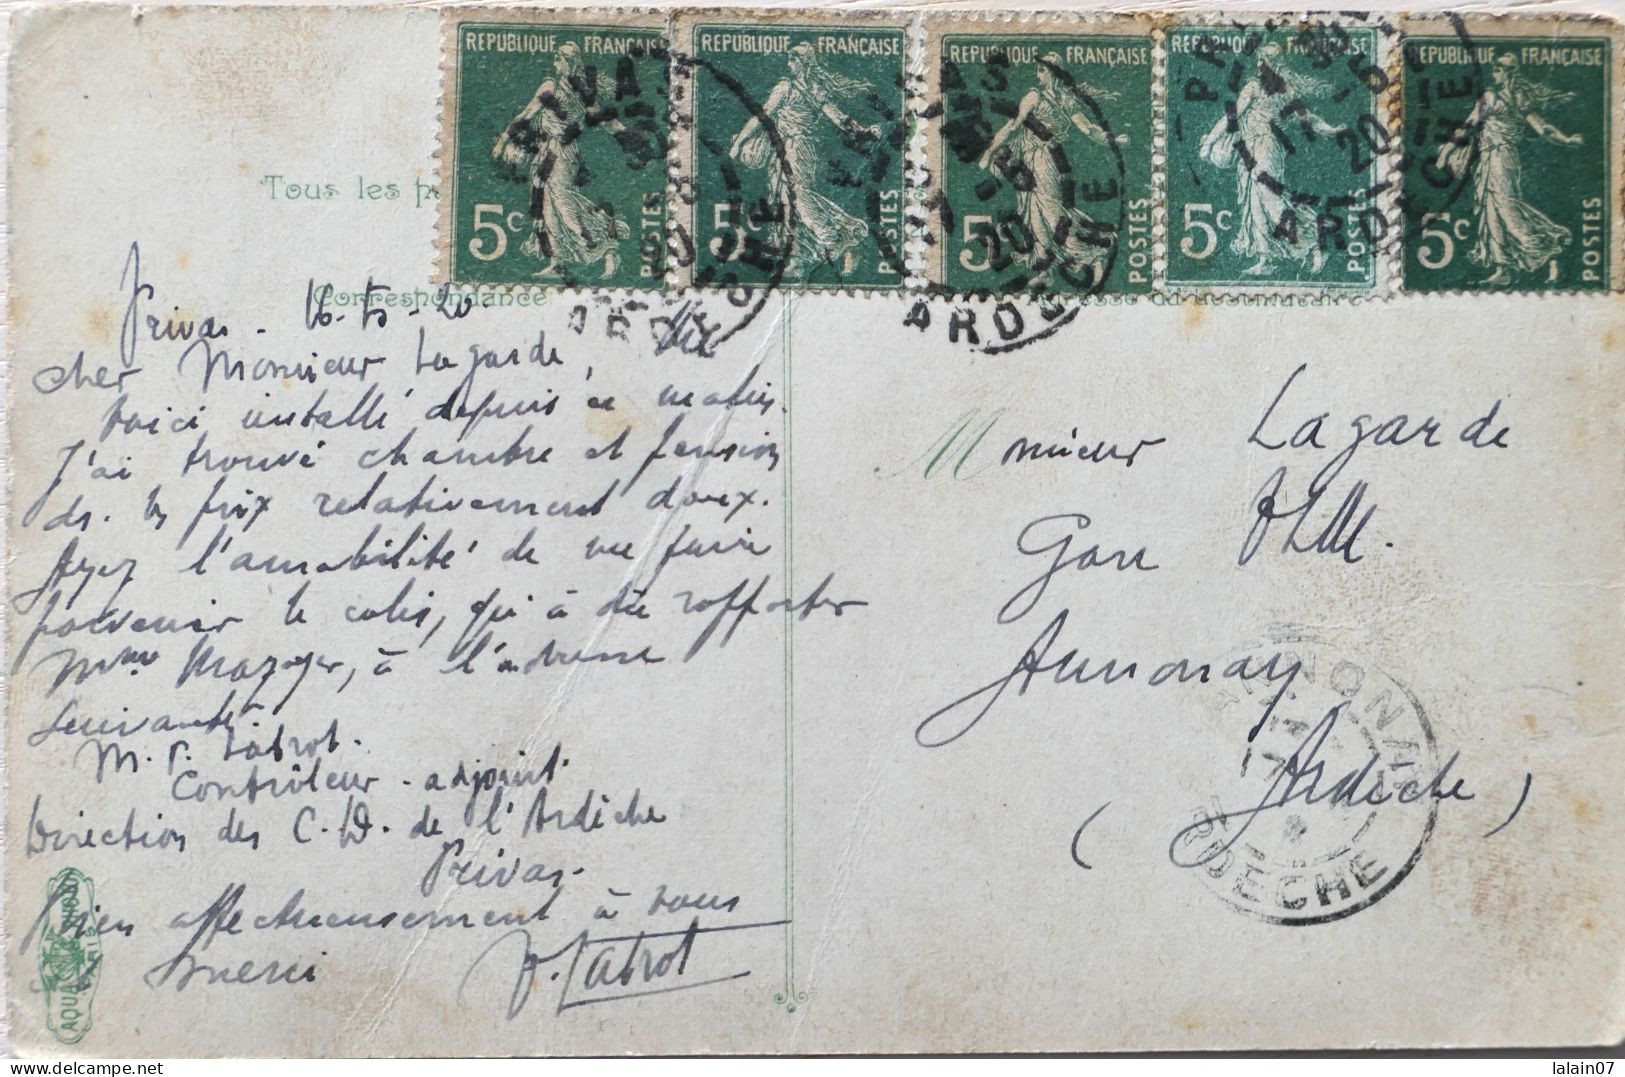 REPUBLIQUE FRANÇAISE REPUBLIQUE FRANÇAISE REPUBLIQUE FRANÇAISE REPUBLIQUE FRANÇAISE REPUBLIQUE FRANÇAISE
5c POSTES 5c POSTES 5c POSTES 5c POSTES 5c POSTES
PRIVAS 17 -5 20 ARDECHE
Tous les
Correspondance
Privas - 16-5-20
cher Monsieur Lagarde, Me
voici installé depuis ce matin.
J'ai trouvé chambre et pension
à des prix relativement doux.
Ayez l'amabilité de me faire
parvenir le colis, qui à dû rapporter
Mme, à l'adresse
suivante
M. P. Labrot.
Contrôleur-adjoint
Direction des C.D. de l'Ardèche
Privas.
Bien affectueusement à vous
merci P. Labrot
Monsieur Lagarde
Gare PLM.
Annonay
(Ardèche)
ANNONAY
ARDECHE
AQUA PHOTO
PARIS
delcampe.net
lalain07